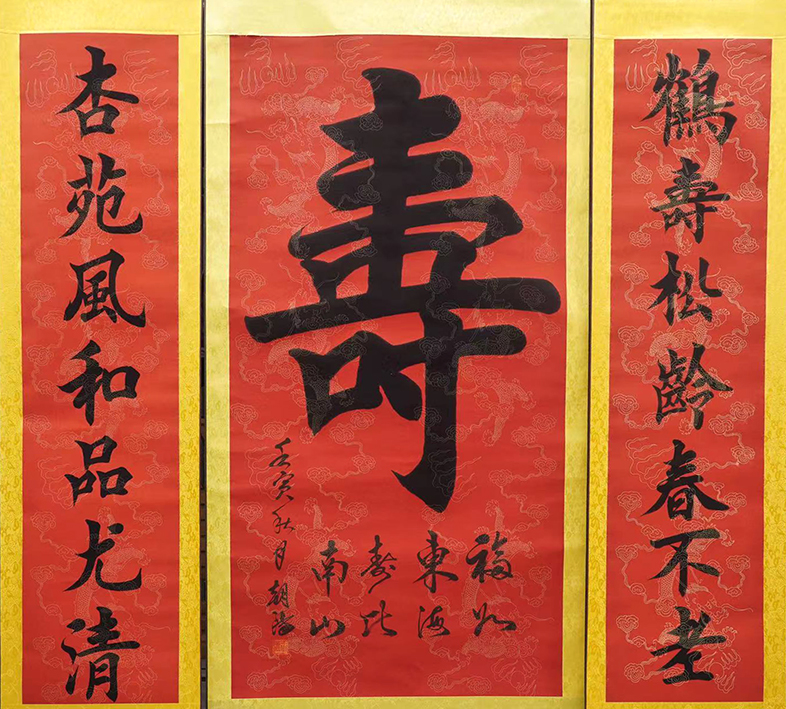 鶴壽松齡春不老
壽
福如
東海
壽比
南山
壬寅秋月 朝
杏苑風和品尤清